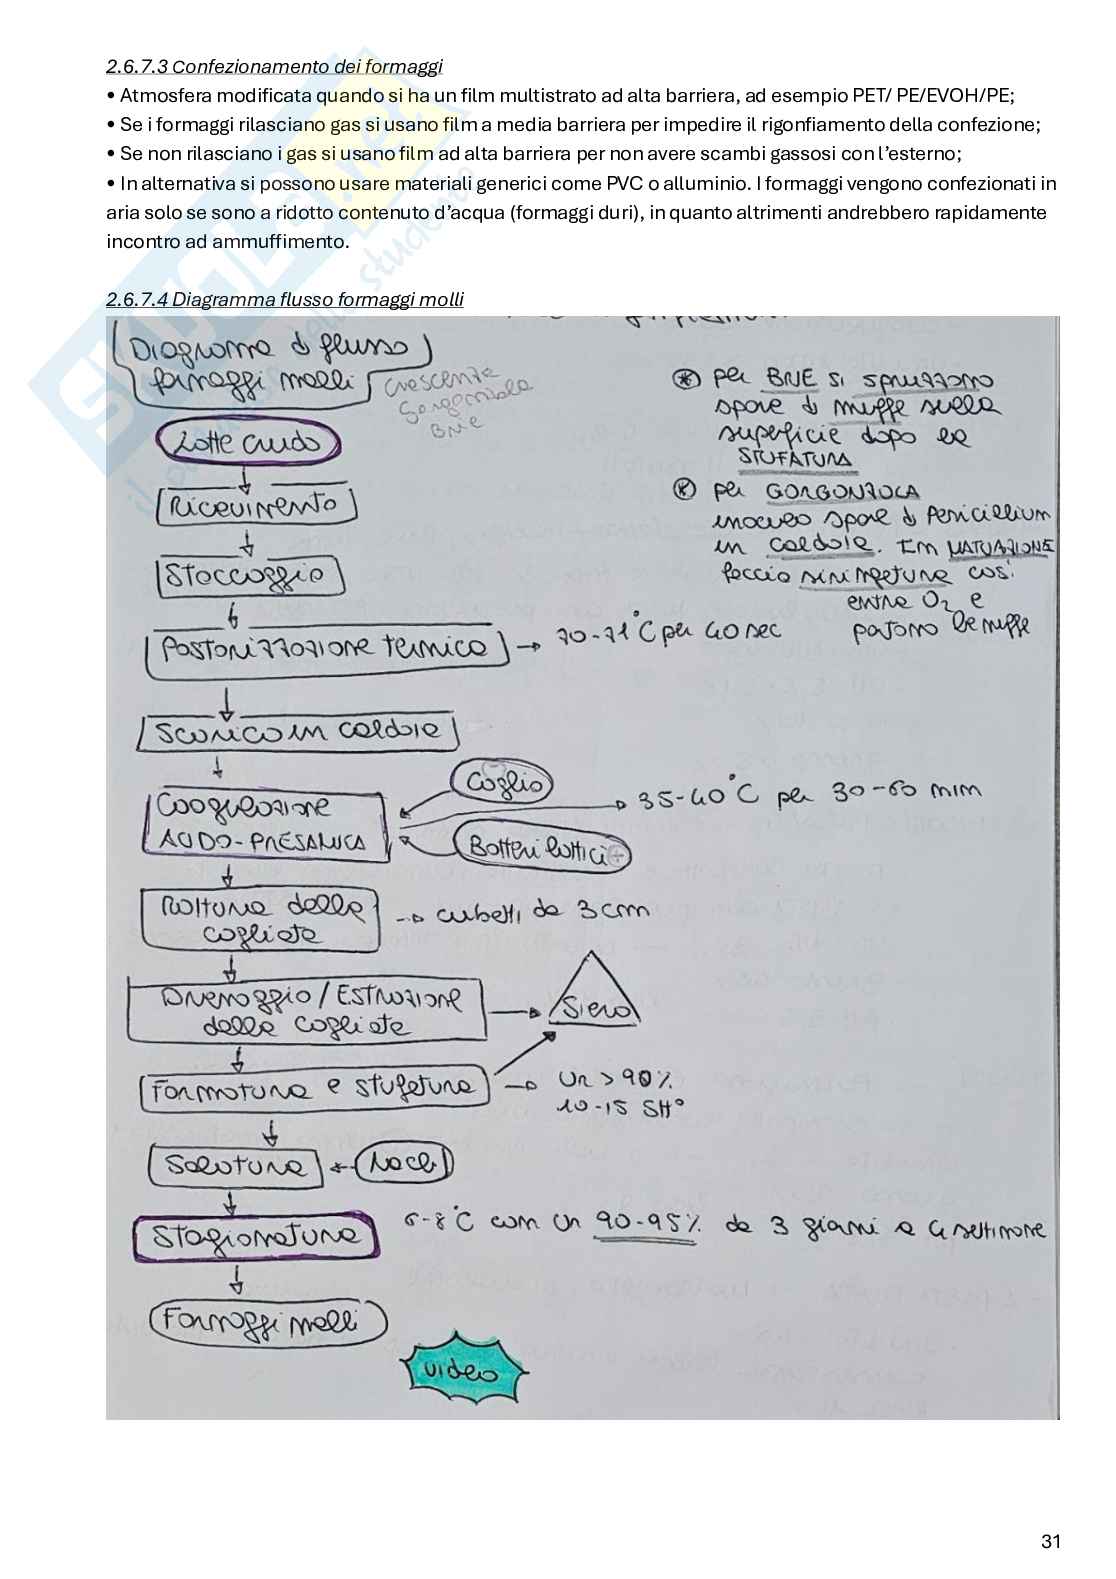 2.6.7.3 Confezionamento dei formaggi
• Atmosfera modificata quando si ha un film multistrato ad alta barriera, ad esempio PET/ PE/EVOH/PE;
• Se i formaggi rilasciano gas si usano film a media barriera per impedire il rigonfiamento della confezione;
• Se non rilasciano i gas si usano film ad alta barriera per non avere scambi gassosi con l'esterno;
• In alternativa si possono usare materiali generici come PVC o alluminio. I formaggi vengono confezionati in
aria solo se sono a ridotto contenuto d'acqua (formaggi duri), in quanto altrimenti andrebbero rapidamente
incontro ad ammuffimento.
2.6.7.4 Diagramma flusso formaggi molli
Diagramma di flusso
formaggi molli
crescenza
Gorgonzola
Brie
* per BRIE si spruzzano
spore di muffe sulla
superficie dopo la
STUFATURA
* per GORGONZOLA
inoculo spore di Penicillium
in caldaia. In MATURAZIONE
faccio siringatura così
entra O2 e
patono le muffe
Latte crudo
Ricevimento
Stoccaggio
Pastorizzazione termica → 70-71°C per 40 sec
Scarico in caldaia
Coagulazione
ACIDO-PRESAMICA
Caglio
35-40°C per 30-60 min
Batteri lattici
Rottura della
cagliata
→ cubetti da 3 cm
Drenaggio/Estrazione
della cagliata
Siero
Formatura e stufatura → UR > 90%
10-15 SH°
Salatura ← NaCl
Stagionatura 6-8°C con UR 90-95% da 3 giorni a 4 settimane
Formaggi molli
video
31
SKUOLA.net